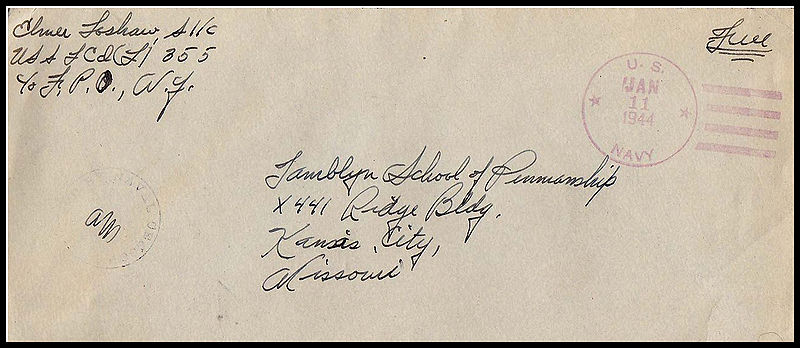 Elmer Foshaw, S 1/c
USS LCI(L) 355
c/o F.P.O., N.Y.
Free
U. S.
JAN
11
1944
NAVY
Tamblyn School of Penmanship
X441 Ridge Bldg.
Kansis City,
Missouri
NAVAL